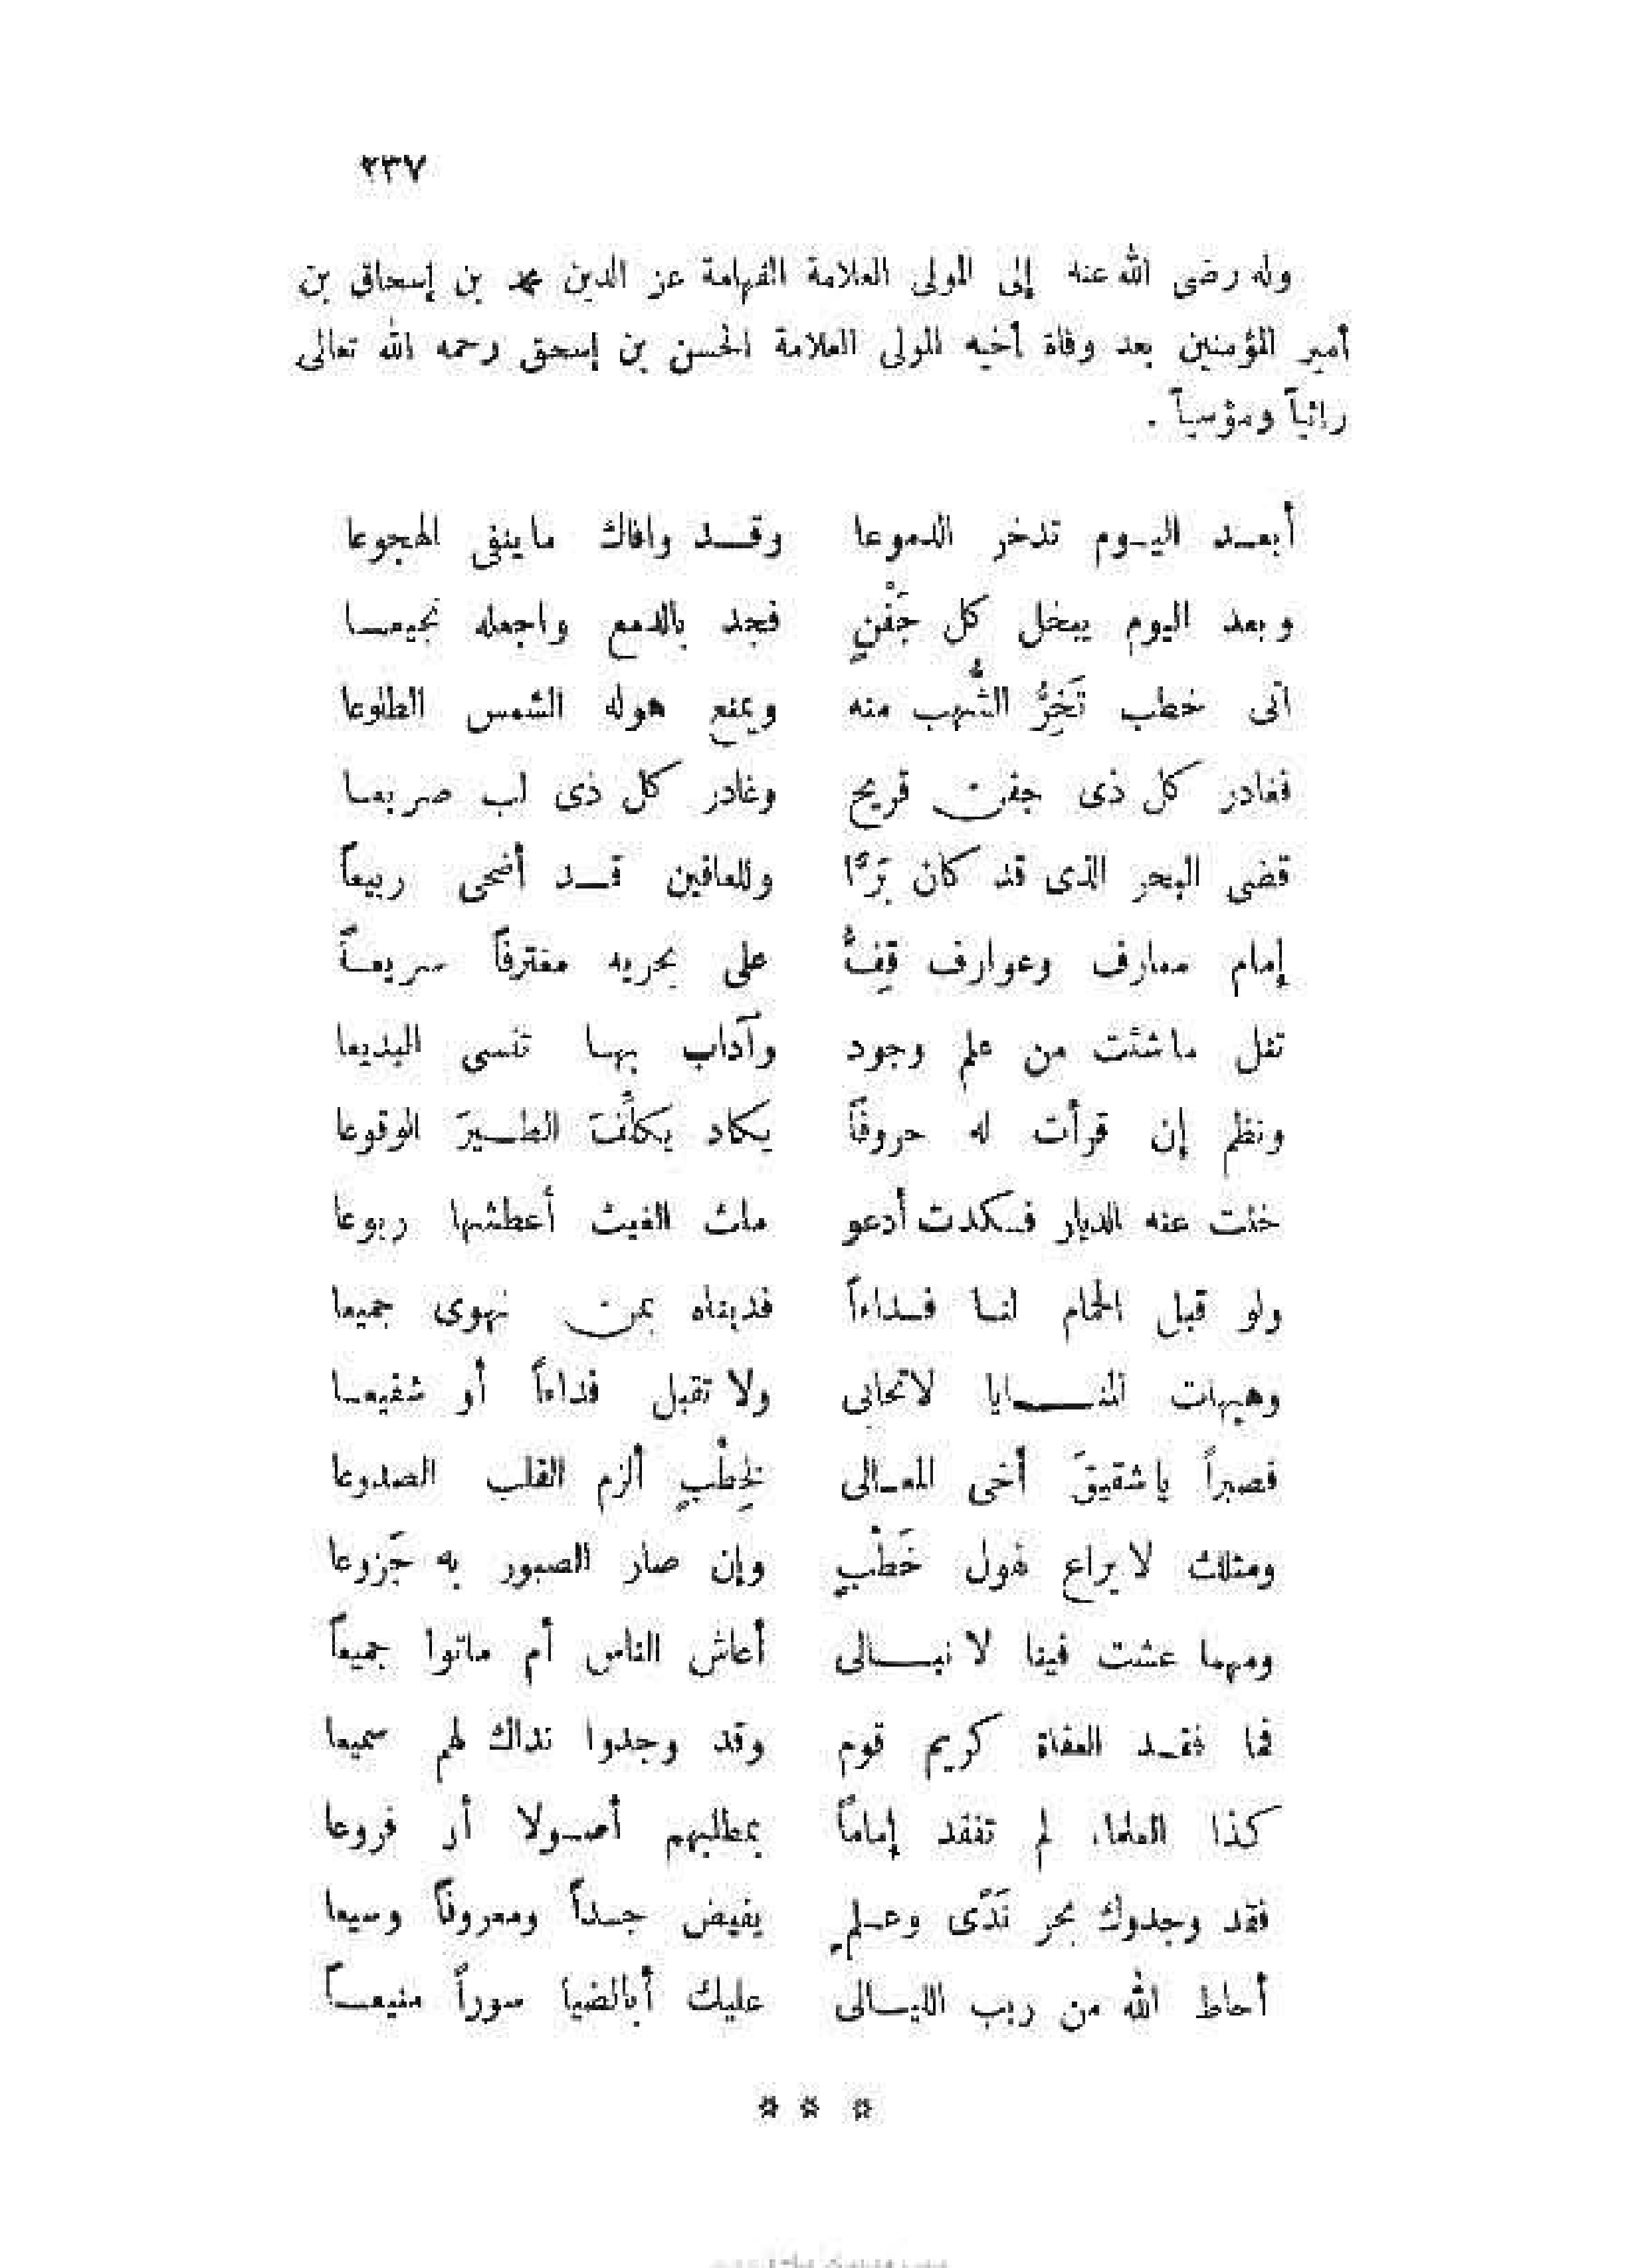 ٢٣٧
وله رضى الله عنه إلى المولى العلامة الفهامة عز الدين محمد بن إسحاق بن
أمير المؤمنين بعد وفاة أخيه المولى العلامة الحسن بن إسحق رحمه الله تعالى
راثياً ومؤسياً .
أبعد اليوم تدخر الدموعا وقد وافاك ماينفى الهجوعا
وبعد اليوم يبخل كل جَفْنٍ فجد بالدمع واجعله نجيعا
أتى خطب تَخِرُّ الشُّهب منه ويمنع هوله الشمس الطلوعا
فغادر كل ذى جفن قريح وغادر كل ذى لب صريعا
قضى البحر الذى قد كان بَرًّا وللعافين قد أضحى ربيعاً
إمام معارف وعوارف قِفْ على بحريه مغترفاً سريعاً
تنل ماشئت من علم وجود وآداب بها تنسى البديعا
ونظم إن قرأت له حروفاً يكاد يكلِّفُ الطيرَ الوقوعا
خلت عنه الديار فكدت أدعو ملث الغيث أعطشها ربوعا
ولو قبل الحمام لنا فداءاً فديناه بمن نهوى جميعا
وهيهات المنايا لاتحابى ولا تقبل فداءاً أو شفيعا
فصبراً ياشقيقَ أخى المعالى لخِطْبٍ ألزم القلب الصدوعا
ومثلك لايراع لهول خَطْبٍ وإن صار الصبور به جَزوعا
ومهما عشت فينا لانبالى أعاش الناس أم ماتوا جميعاً
فما فقد العفاة كريم قوم وقد وجدوا نداك لهم سميعا
كذا العلماء لم تفقد إماماً بمطلبهم أصولا أو فروعا
فقد وجدوك بحر نَدًى وعلمٍ يفيض جداً ومعروفاً وسيعا
أحاط الله من ريب الليالى عليك أبالضيا سوراً منيعاً
* * *